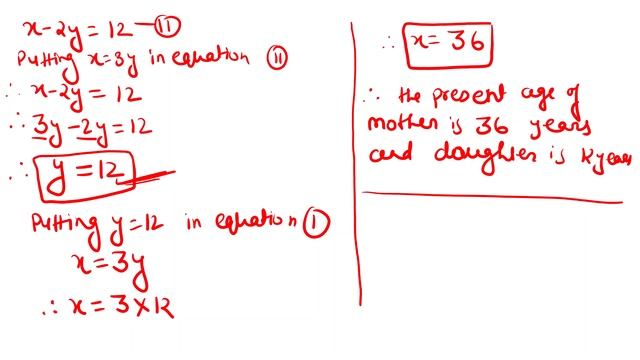 x-2y = 12 — (II)
Putting x=3y in equation (II)
∴ x-2y = 12
∴ 3y-2y=12
∴ y = 12
Putting y=12 in equation (I)
x = 3y
∴ x = 3×12
∴ x= 36
∴ the present age of
mother is 36 years
and daughter is 12 years